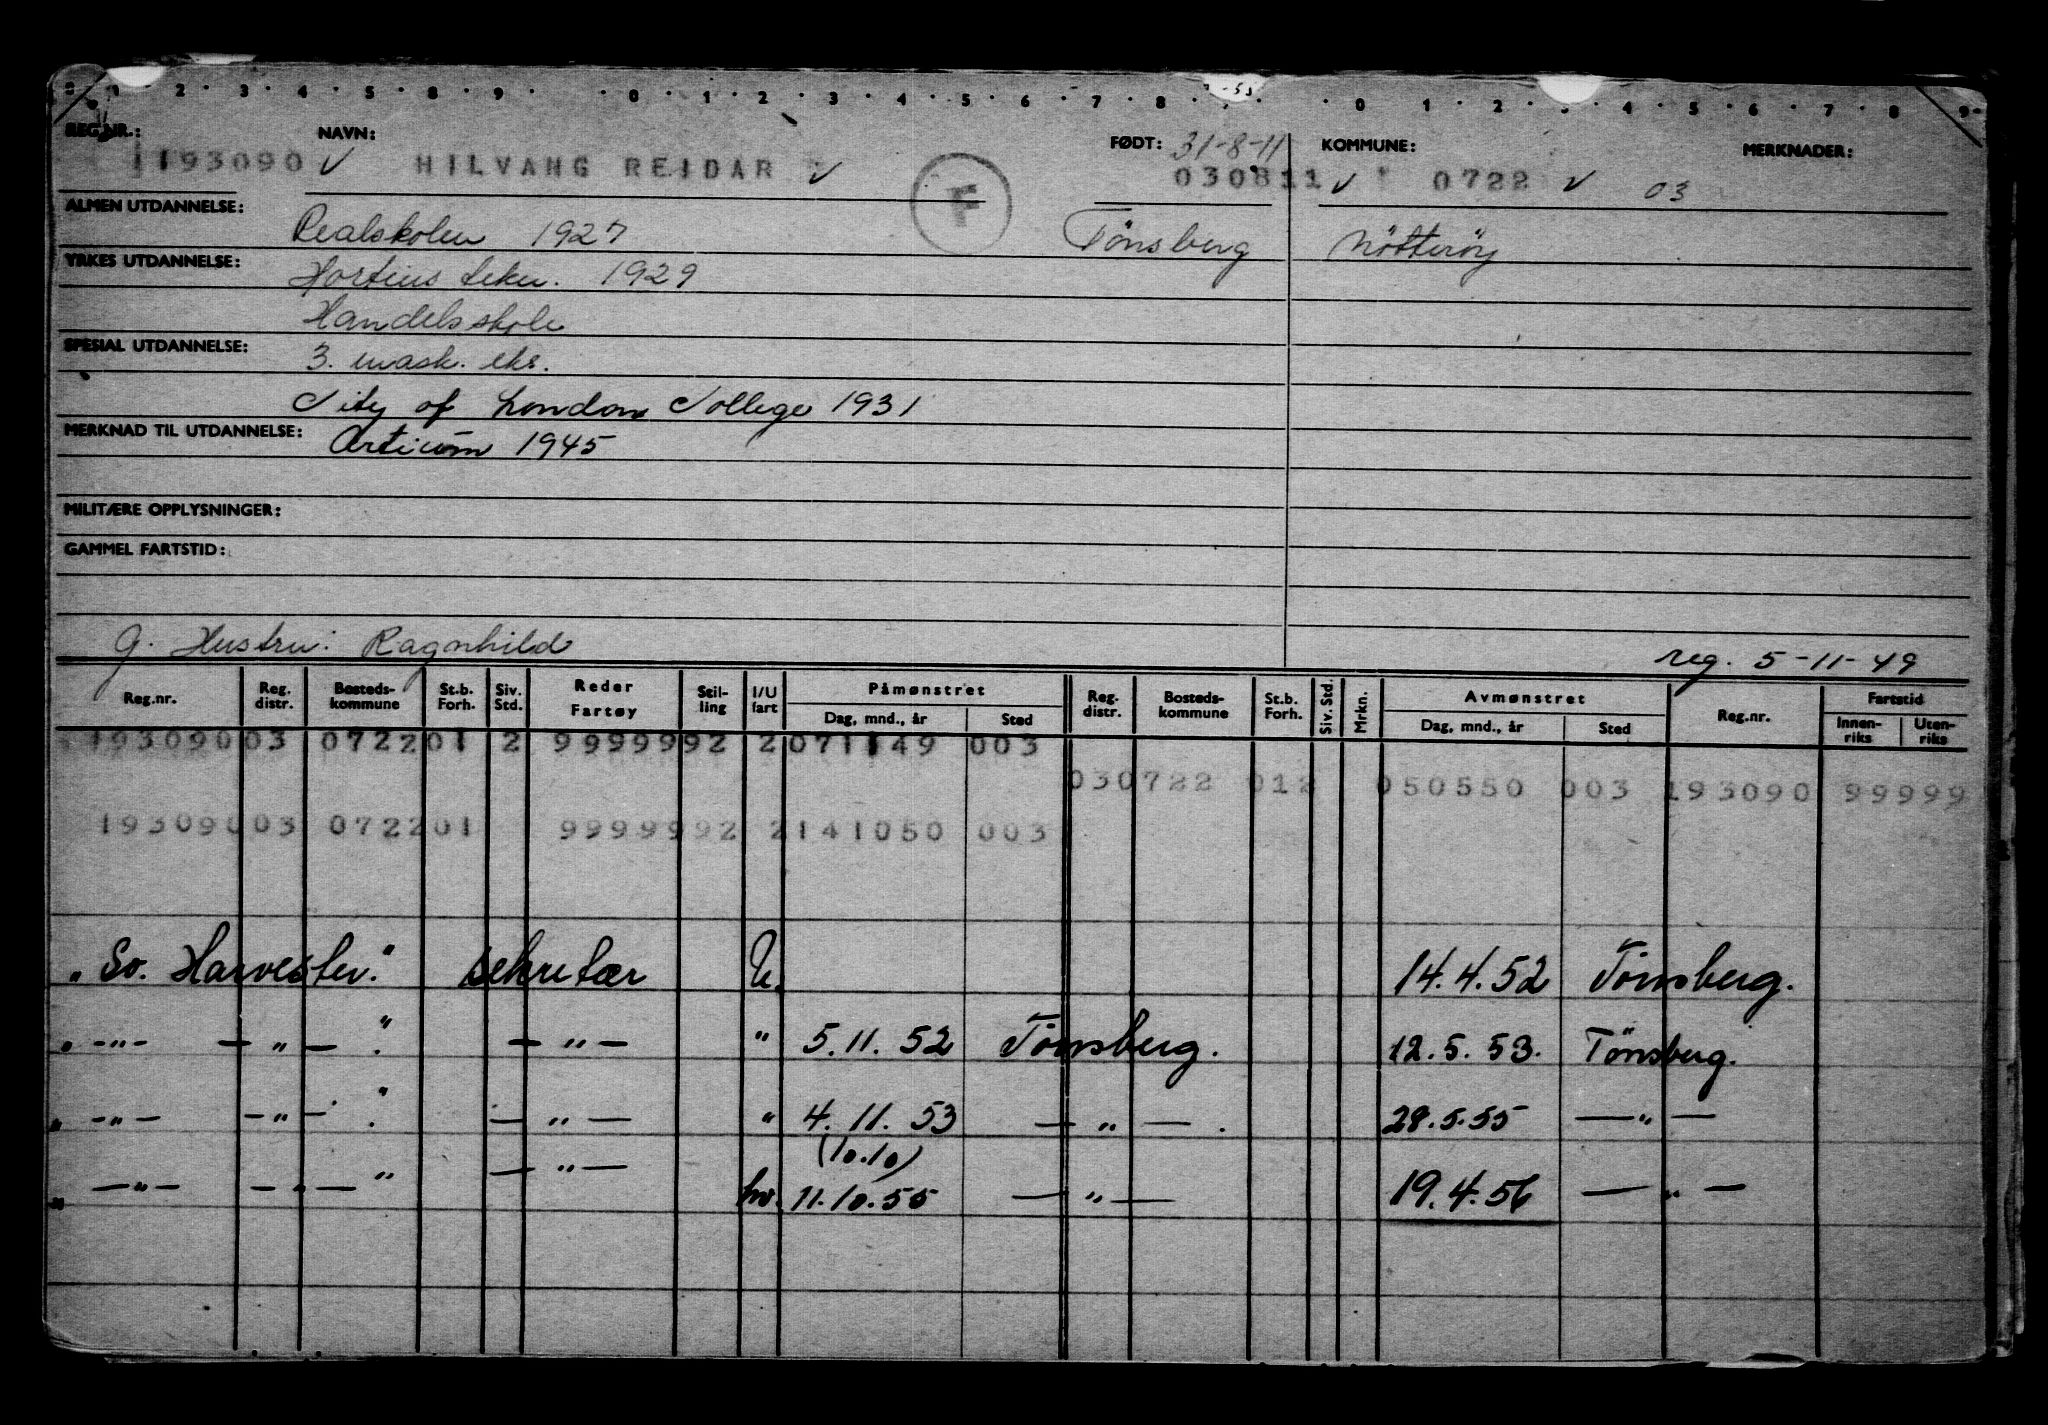 1 2 3 4 5 8 9 0 1 2 3 4 5 6 7 8 0 1 2 3 4 5 6 7 8 9
REG.NR.: NAVN: FØDT: 31-8-11 KOMMUNE: MERKNADER:
1193090 ✓ HILVANG REIDAR ✓ F 030811 ✓ 0722 ✓ 03
ALMEN UTDANNELSE: Realskolen 1927 Tönsberg Nötteröy
YRKES UTDANNELSE: Hortens tekn. 1929
Handelsskole
SPESIAL UTDANNELSE: 3. mask. eks.
City of London College 1931
MERKNAD TIL UTDANNELSE: Artium 1945
MILITÆRE OPPLYSNINGER:
GAMMEL FARTSTID:
G. Hustru: Ragnhild reg. 5-11-49
Reg.nr. Reg. distr. Bosteds-kommune St.b. Forh. Siv. Std. Reder Fartøy Stil-ling I/U fart Påmønstret Dag, mnd., år Sted Reg. distr. Bosteds-kommune St.b. Forh. Siv. Std. Mrkn. Avmønstret Dag, mnd., år Sted Reg.nr. Fartstid Innen-riks Uten-riks
193090 03 0722 01 2 9999992 2 071149 003
030722 012 050550 003 193090 99999
193090 03 0722 01 9999992 2 141050 003
"Sv. Harvester." sekretær U. 14.4.52 Tönsberg.
" -"- -"- ." -"- " 5.11.52 Tönsberg. 12.5.53. Tönsberg.
" -"- -"- ." -"- " 4.11.53 -"- . 28.5.55 -"-
(10.10)
" -"- -"- " -"- hv. 11.10.55 -"- 19.4.56 -"-